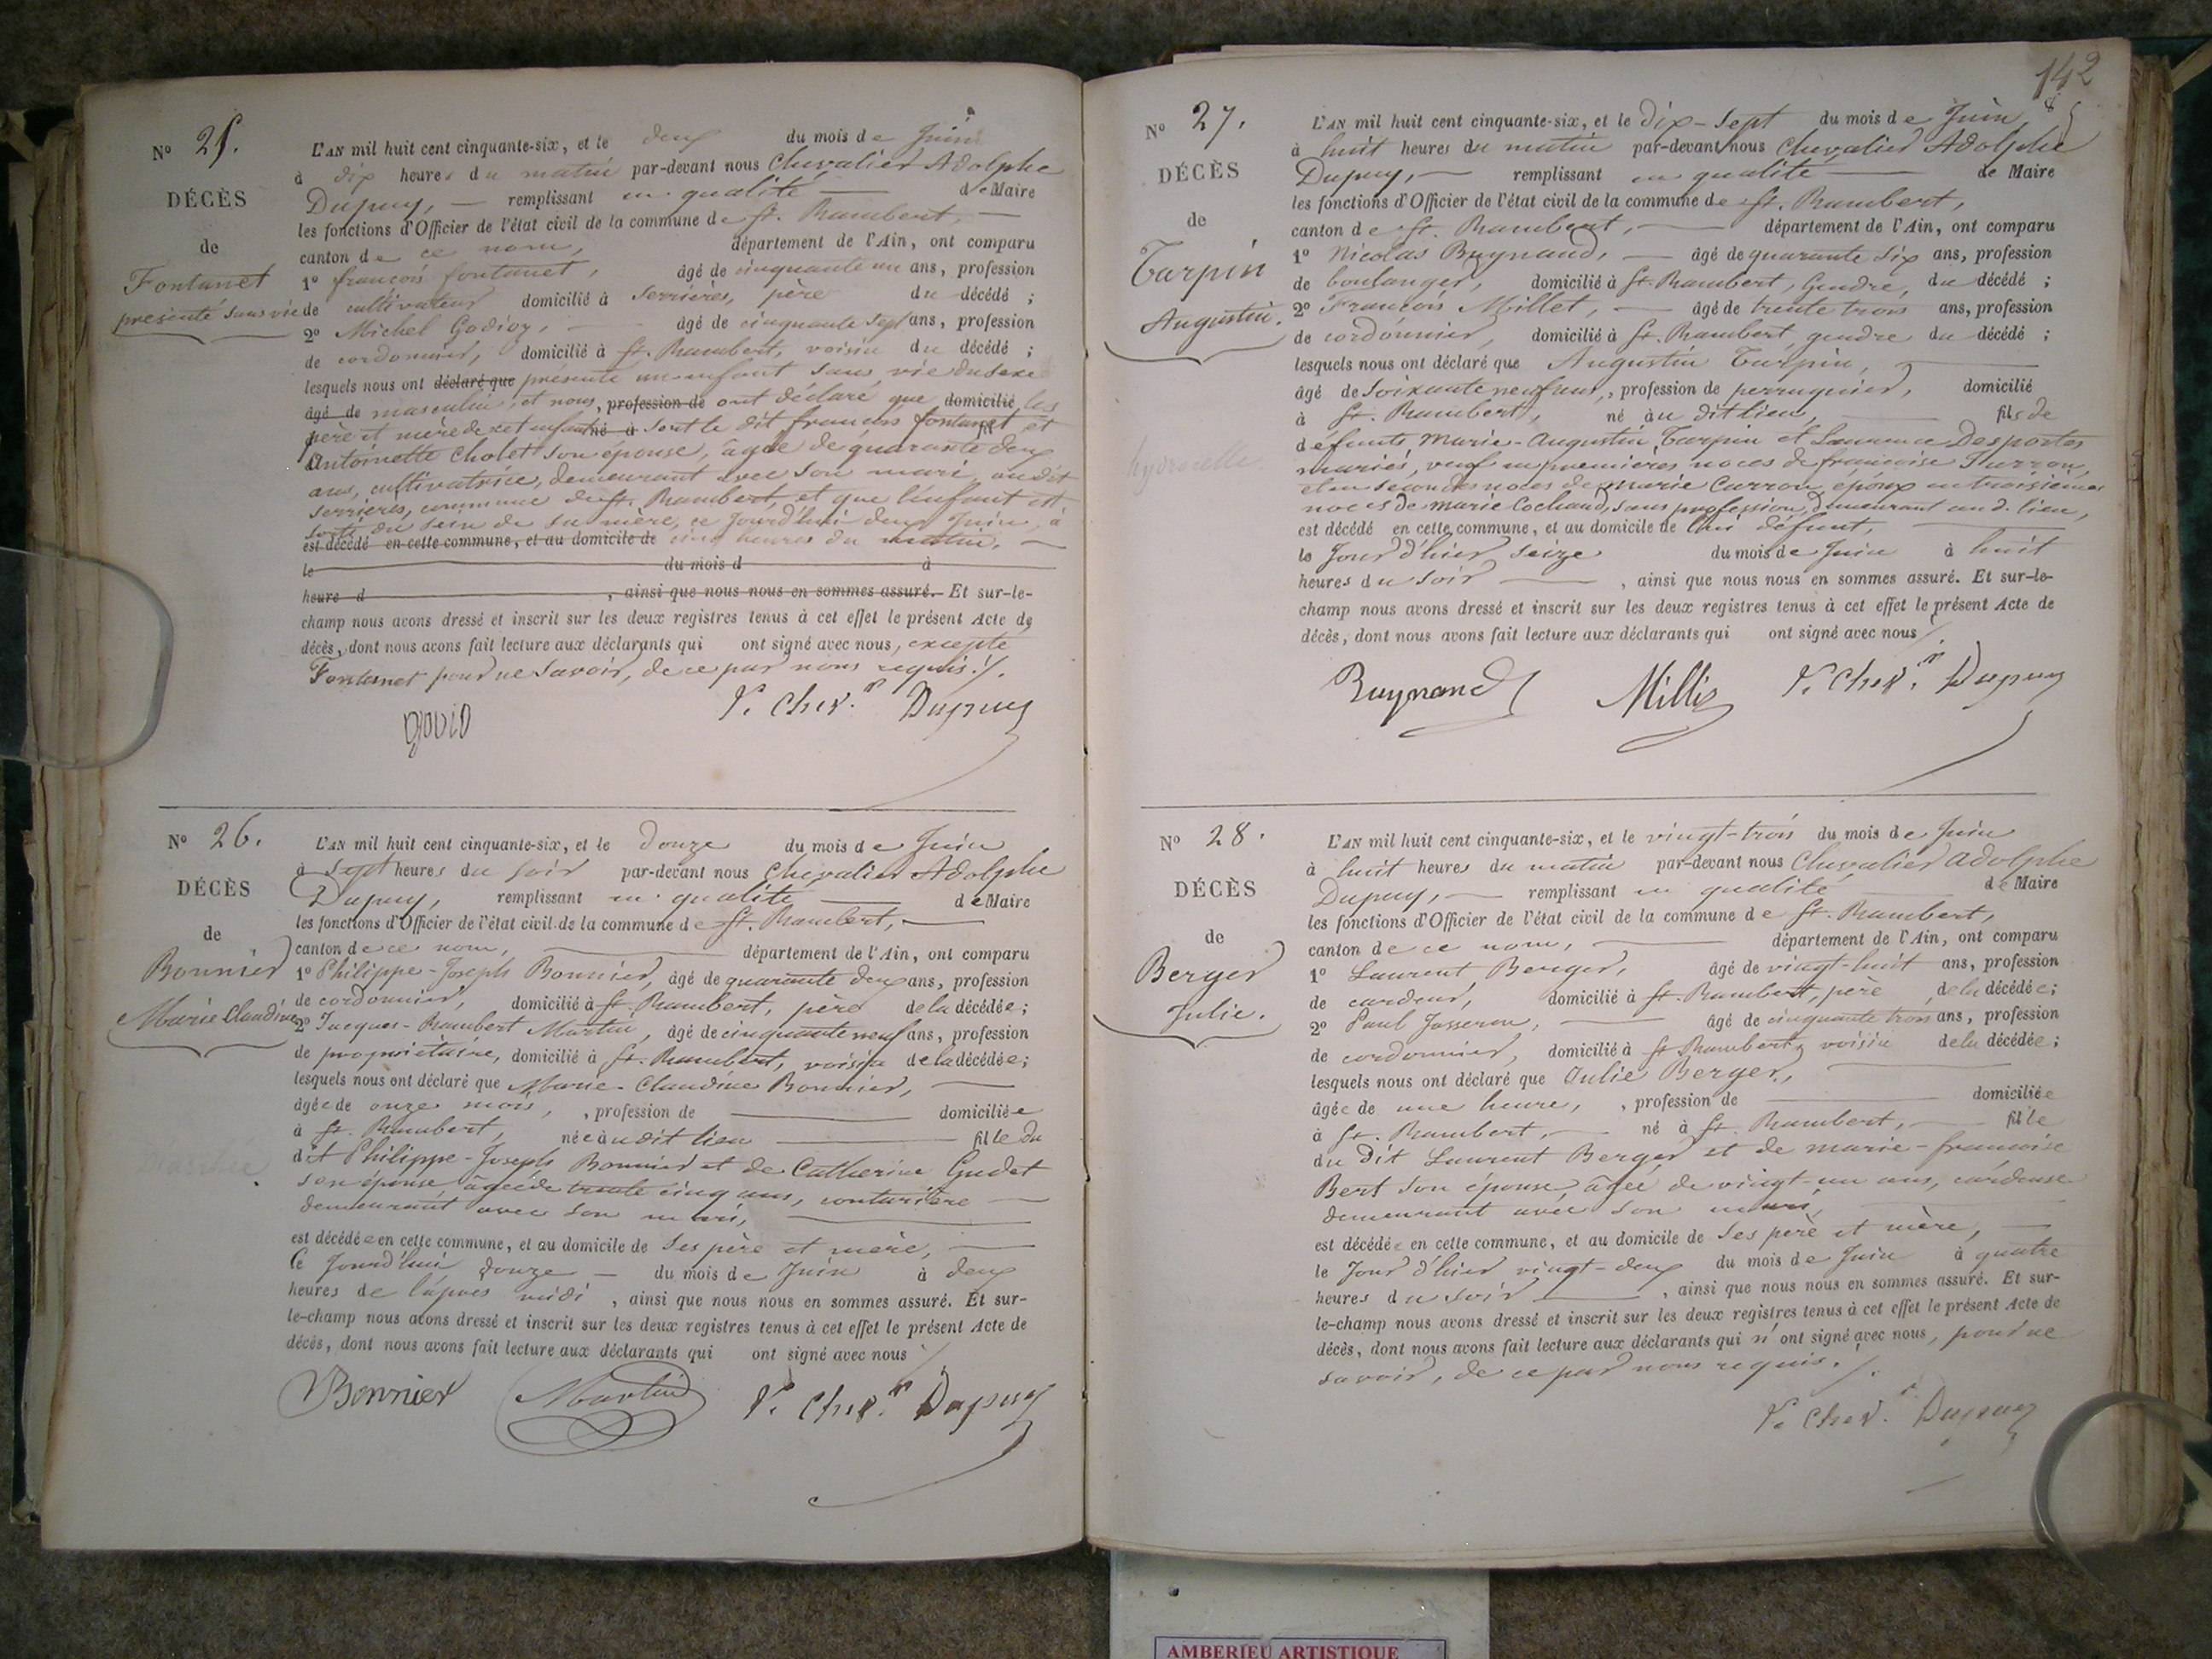 Nº 25.
DÉCÈS
de
Fontanet
présenté sans vie
L'AN mil huit cent cinquante-six, et le deux du mois de Juin
à dix heures du matin par-devant nous Chevalier Adolphe
Dupuy, remplissant en qualité de Maire
les fonctions d'Officier de l'état civil de la commune de St. Rambert,
canton de ce nom, département de l'Ain, ont comparu
1º françois fontanet, âgé de cinquante un ans, profession
de cultivateur domicilié à Serrières, père du décédé ;
2º Michel Godioz, âgé de cinquante sept ans, profession
de cordonnier, domicilié à St. Rambert, voisin du décédé ;
lesquels nous ont déclaré que présenté un enfant sans vie du sexe
âgé de masculin, et nous, profession de ont déclaré que domicilié les
père et mère de cet enfant né à sont le dit françois fontanet et
Antoinette Cholet son épouse, âgée de quarante deux
ans, cultivatrice, demeurant avec son mari, au dit
Serrières, commune de St. Rambert, et que l'enfant est
sorti du sein de sa mère, ce jourd'hui deux Juin, à
est décédé en cette commune, et au domicile de cinq heures du matin.
le du mois d à
heure d , ainsi que nous nous en sommes assuré. Et sur-le-
champ nous avons dressé et inscrit sur les deux registres tenus à cet effet le présent Acte de
décès, dont nous avons fait lecture aux déclarants qui ont signé avec nous, excepté
Fontanet pour ne savoir, de ce par nous requis ./.
V. Cher. Dupuy
Nº 26.
DÉCÈS
de
Bonnier
Marie Claudine
L'AN mil huit cent cinquante-six, et le douze du mois de Juin
à sept heures du soir par-devant nous Chevalier Adolphe
Dupuy, remplissant en qualité de Maire
les fonctions d'Officier de l'état civil de la commune de St. Rambert,
canton de ce nom, département de l'Ain, ont comparu
1º Philippe-Joseph Bonnier, âgé de quarante deux ans, profession
de cordonnier, domicilié à St. Rambert, père de la décédée ;
2º Jacques-Rambert Martin, âgé de cinquante neuf ans, profession
de propriétaire, domicilié à St. Rambert, voisin de la décédée ;
lesquels nous ont déclaré que Marie-Claudine Bonnier,
âgée de onze mois, , profession de domiciliée
à St. Rambert, née au dit lieu fille du
dit Philippe-Joseph Bonnier et de Catherine Gudet
son épouse âgée de trente cinq ans, couturière
demeurant avec son mari,
est décédée en cette commune, et au domicile de ses père et mère,
Ce Jourd'hui douze du mois de Juin à deux
heures de l'après midi , ainsi que nous nous en sommes assuré. Et sur-
le-champ nous avons dressé et inscrit sur les deux registres tenus à cet effet le présent Acte de
décès, dont nous avons fait lecture aux déclarants qui ont signé avec nous
Bonnier Martin V. Cher. Dupuy
142
Nº 27.
DÉCÈS
de
Turpin
Augustin.
L'AN mil huit cent cinquante-six, et le dix-sept du mois de Juin
à huit heures du matin par-devant nous Chevalier Adolphe
Dupuy, remplissant en qualité de Maire
les fonctions d'Officier de l'état civil de la commune de St. Rambert,
canton de St. Rambert, département de l'Ain, ont comparu
1º Nicolas Rugnand, âgé de quarante six ans, profession
de boulanger, domicilié à St. Rambert, Gendre, du décédé ;
2º François Millet, âgé de trente trois ans, profession
de cordonnier, domicilié à St. Rambert, gendre du décédé ;
lesquels nous ont déclaré que Augustin Turpin,
âgé de soixante neuf ans, , profession de perruquier, domicilié
à St. Rambert, né au dit lieu, fils de
défunts Marie-Augustin Turpin et Laurence Desportes
mariés, veuf en premières noces de françoise
et en secondes noces de Marie Carron, époux en troisièmes
noces de Marie Cochaud, sans profession, demeurant aud. lieu,
est décédé en cette commune, et au domicile de lui défunt,
le Jour d'hier seize du mois de Juin à huit
heures du soir , ainsi que nous nous en sommes assuré. Et sur-le-
champ nous avons dressé et inscrit sur les deux registres tenus à cet effet le présent Acte de
décès, dont nous avons fait lecture aux déclarants qui ont signé avec nous ./.
Rugnand Millet V. Cher. Dupuy
Nº 28.
DÉCÈS
de
Berger
Julie.
L'AN mil huit cent cinquante-six, et le vingt-trois du mois de Juin
à huit heures du matin par-devant nous Chevalier Adolphe
Dupuy, remplissant en qualité de Maire
les fonctions d'Officier de l'état civil de la commune de St. Rambert,
canton de ce nom, département de l'Ain, ont comparu
1º Laurent Berger, âgé de vingt-huit ans, profession
de cardeur, domicilié à St. Rambert, père de la décédée ;
2º Paul Josseron, âgé de cinquante trois ans, profession
de cordonnier, domicilié à St. Rambert, voisin de la décédée ;
lesquels nous ont déclaré que Julie Berger,
âgée de une heure, , profession de domiciliée
à St. Rambert, né à St. Rambert, fille
du dit Laurent Berger et de marie-françoise
Bert son épouse, âgée de vingt-un ans, cardeuse
demeurant avec son mari,
est décédée en cette commune, et au domicile de ses père et mère,
le Jour d'hier vingt-deux du mois de Juin à quatre
heures du soir , ainsi que nous nous en sommes assuré. Et sur-
le-champ nous avons dressé et inscrit sur les deux registres tenus à cet effet le présent Acte de
décès, dont nous avons fait lecture aux déclarants qui n'ont signé avec nous, pour ne
savoir, de ce par nous requis. ./.
V. Cher. Dupuy
AMBERIEU ARTISTIQUE